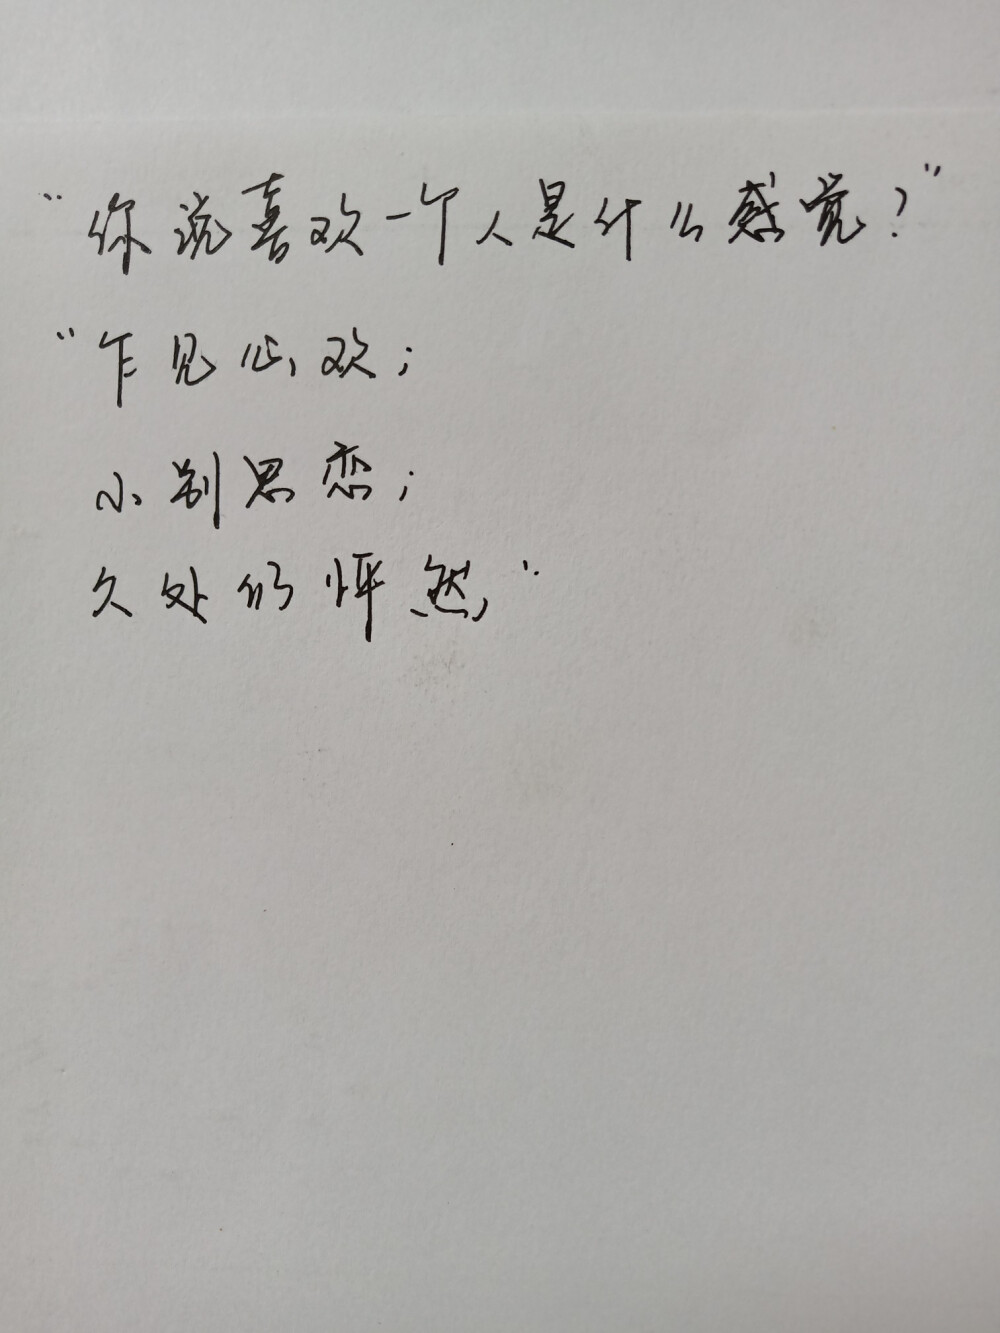 “你说喜欢一个人是什么感觉？”
“乍见心欢；
小别思恋；
久处仍怦然”